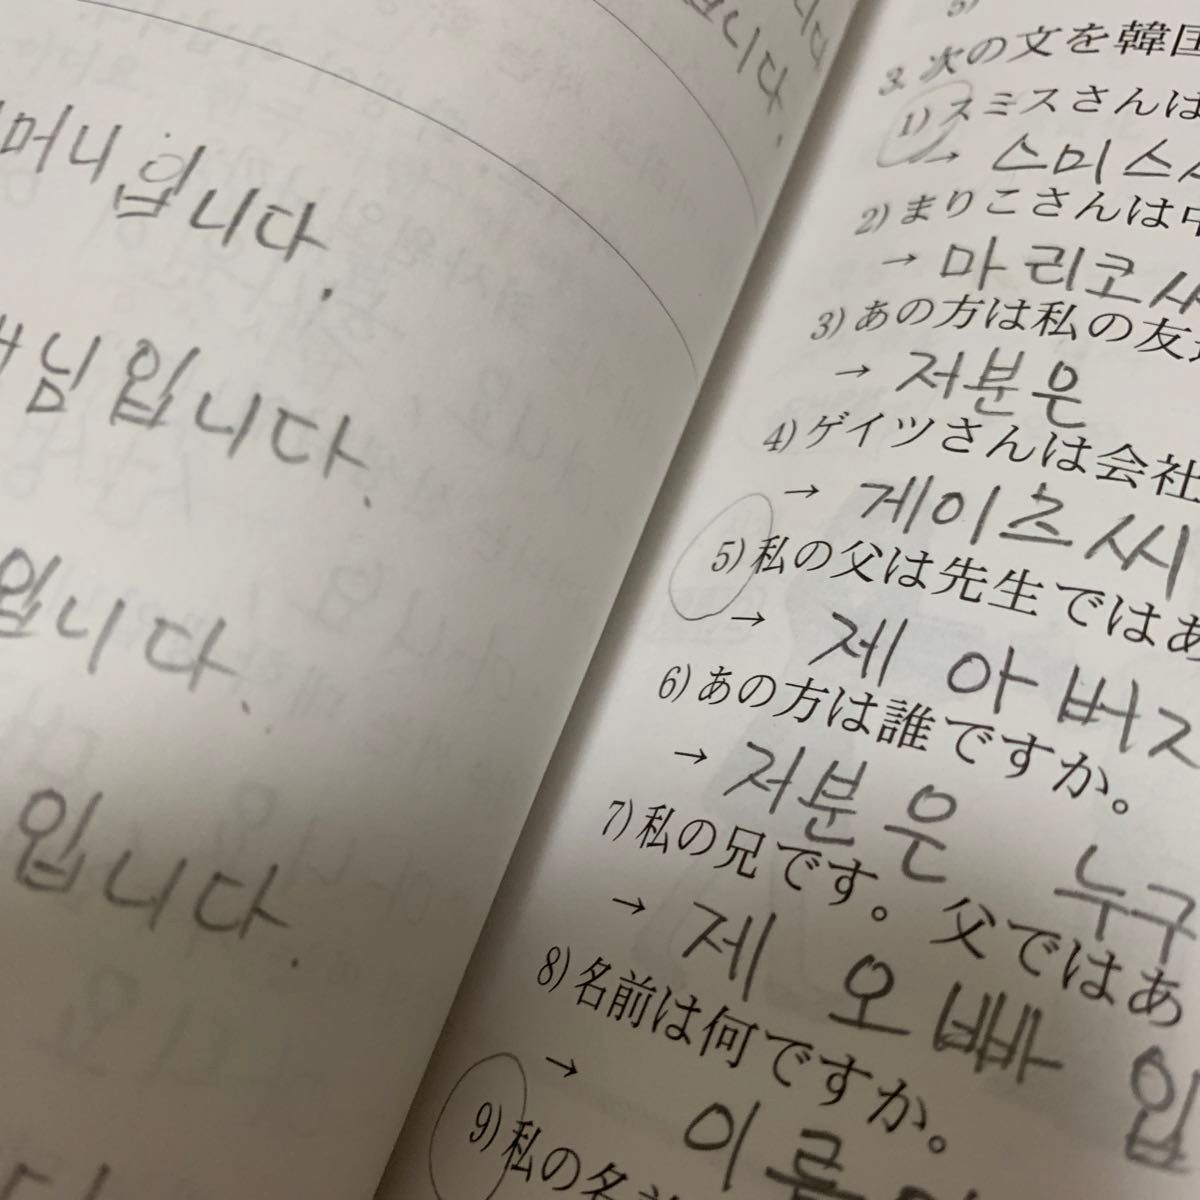 습니다.
머니 입니다.
님 입니다.
입니다.
입니다.
3. 次の文を韓国
1) スミスさんは
→ 스미스
2) まりこさんは中
→ 마리코
3) あの方は私の友
→ 저분은
4) ゲイツさんは会社
→ 게이츠 씨
5) 私の父は先生ではあ
→ 제 아버지
6) あの方は誰ですか。
→ 저분은 누구
7) 私の兄です。父ではあ
→ 제 오빠 입
8) 名前は何ですか。
→ 이름
9) 私の名前